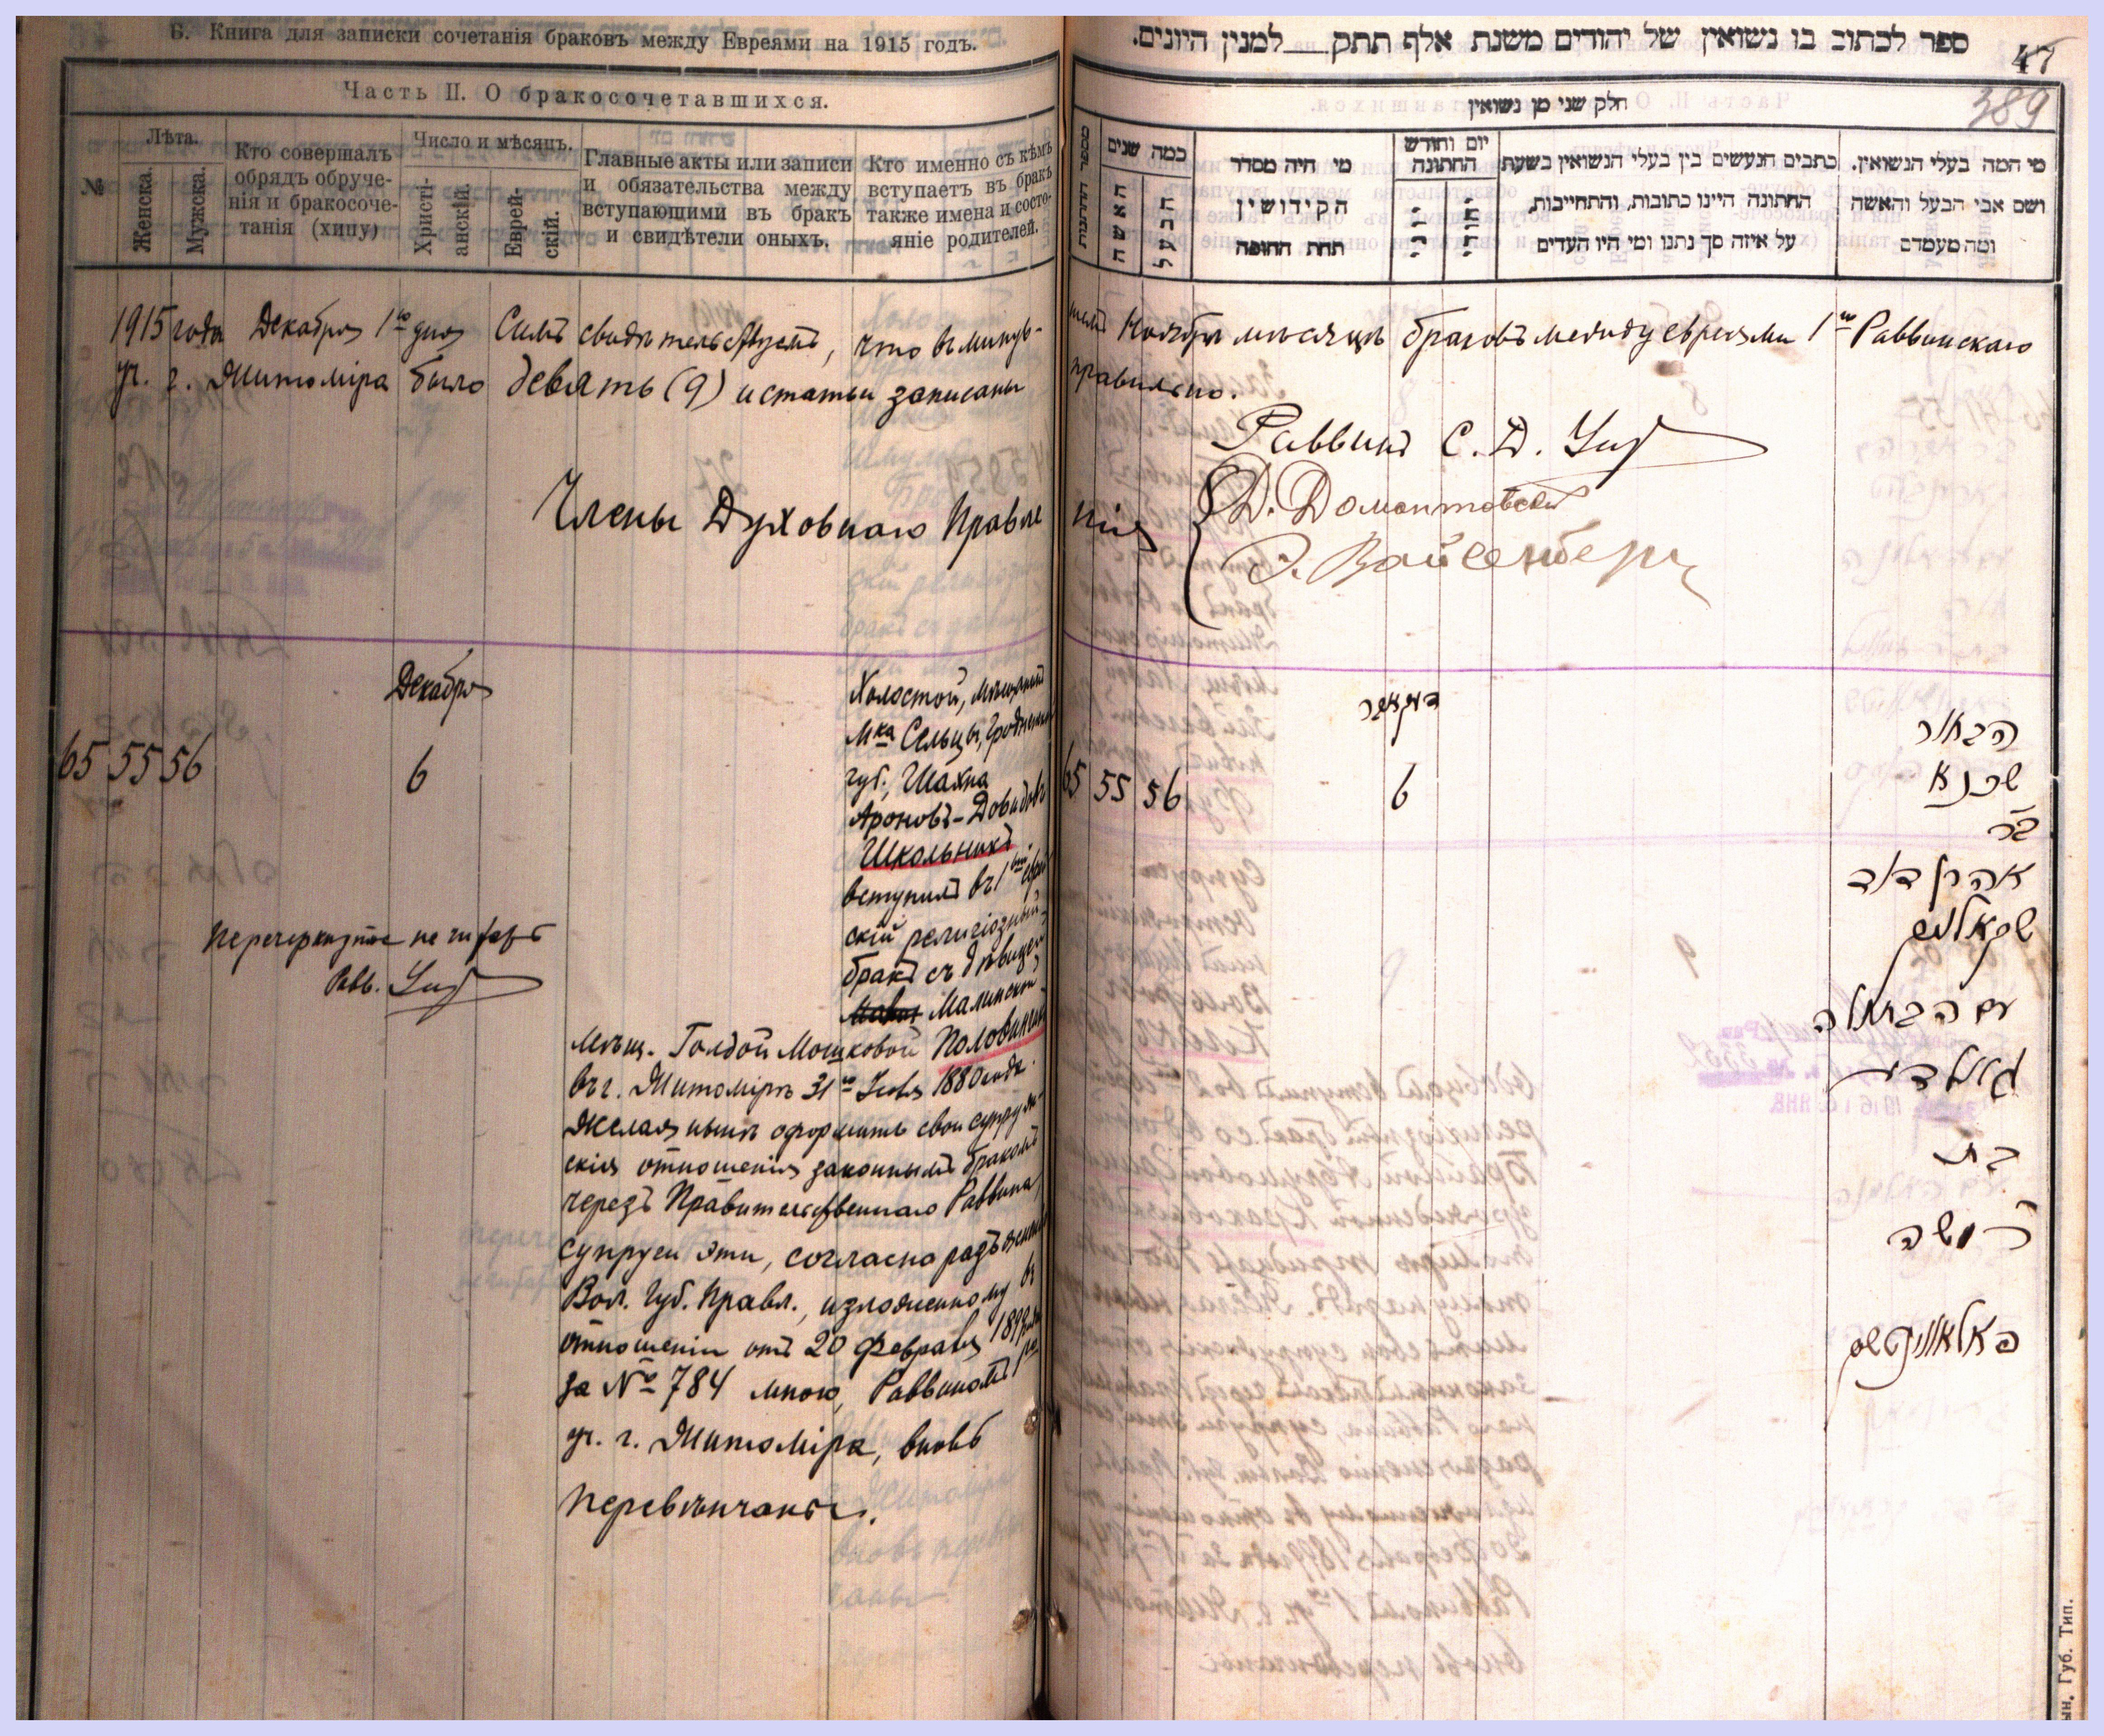 Б. Книга для записки сочетанія браковъ между Евреями на 1915 годъ.
Часть II. О бракосочетавшихся.
№
Лѣта.
Женска.
Мужска.
Кто совершалъ
обрядъ обруче-
нія и бракосоче-
танія (хипу)
Число и мѣсяцъ.
Христі-
анскій.
Еврей-
скій.
Главные акты или записи
и обязательства между
вступающими въ бракъ
и свидѣтели оныхъ.
Кто именно съ кѣмъ
вступаетъ въ бракъ
также имена и состо-
яніе родителей.
1915 года Декабря 1го дня Симъ свидѣтельствуемъ, что въ минув-
уч. г. Житоміра было девять (9) и статьи записаны
Члены Духовнаго Правле
Декабря
65 55 56
6
Холостой, мѣщанинъ
мка Сельцы, Гродненской
губ., Шахна
Ароновъ-Довидовъ
Школьникъ
вступилъ въ 1вый еврей
скій религіозный
бракъ съ дѣвицей
Малинской
мѣщ. Голдой Мошковой Половинчикъ
въ г. Житомірѣ 31го Іюля 1880 года.
Желая нынѣ оформить свои супруже-
скія отношенія законнымъ бракомъ
черезъ Правительственнаго Раввина,
супруги эти, согласно разъясненію
Вол. Губ. Правл., изложенному въ
отношеніи отъ 20 Февраля
за № 784 мною, Раввиномъ 1го
уч. г. Житоміра, вновь
перевѣнчаны.
Перечеркнутое не читать
Равв.
ספר לכתוב בו נשואין של יהודים משנת אלף תתק למנין היונים.
47
389
חלק שני מן נשואין
מספר החתונות
כמה שנים
האשה
הבעל
מי היה מסדר
הקידושין
תחת החופה
יום וחודש
החתונה
יוני
יהודי
כתבים הנעשים בין בעלי הנשואין בשעת
החתונה היינו כתובות, והתחייבות,
על איזה סך נתנו ומי היו העדים
מי המה בעלי הנשואין.
ושם אבי הבעל והאשה
ומה מעמדם
шемъ Ноябрѣ мѣсяцѣ браковъ между евреями 1го Раввинскаго
правильно.
Раввинъ С. Д.
нія
Д. Домонтовскій
Вайсенбергъ
דעקאבר
65 55 56
6
הבחור
שכנא
בר
אהרן דוד
שקאלניק
עם הבתולה
גאלדי
בת
משה
פאלאווינטשיק
ын. Губ. Тип.